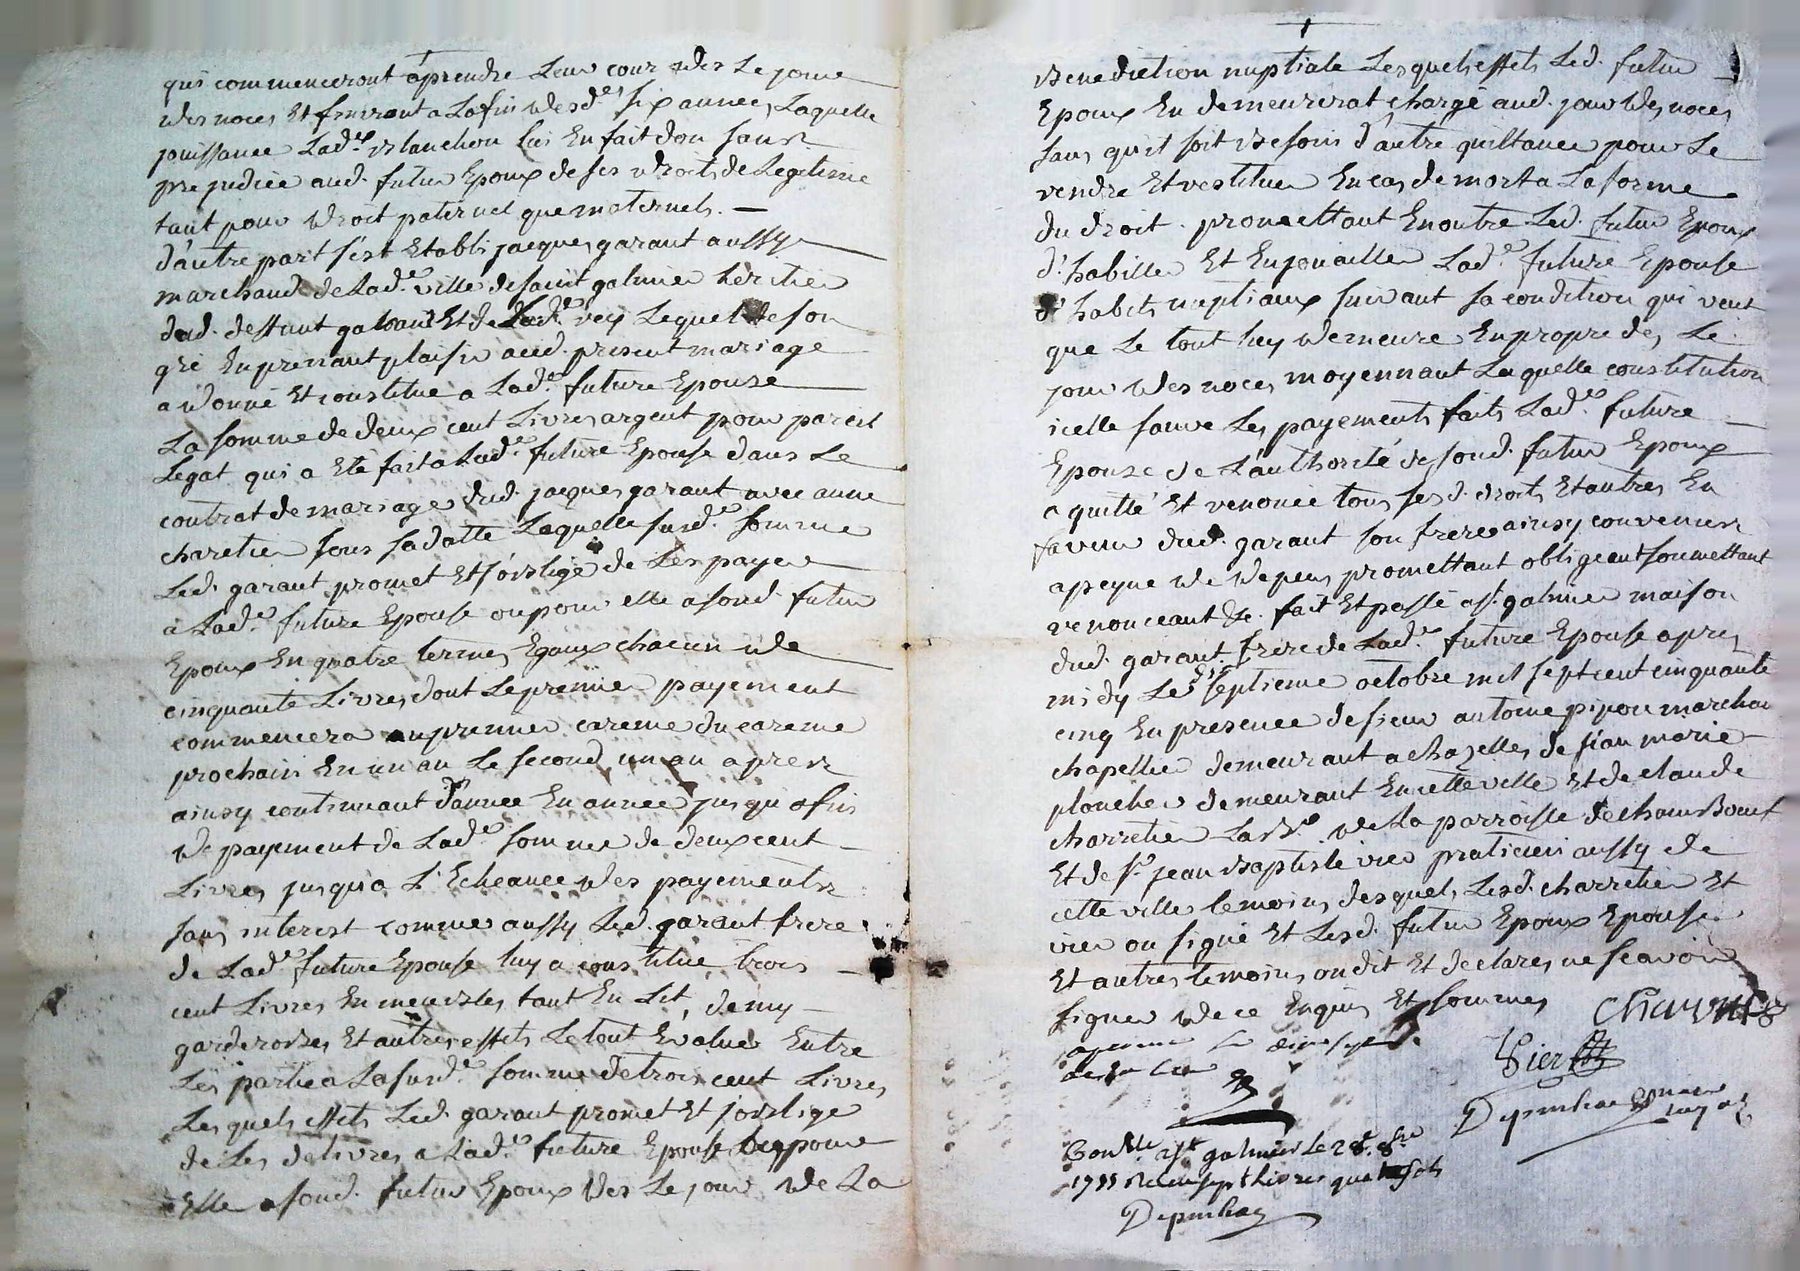 qui commenceront a prendre Leur cour des Le jour
des noces Et finiront a La fin desd.es six années, Laquelle
jouissance Lad.e blanchon lui En fait don sans
prejudice aud. futur Epoux de ses droits de Legitime
tant pour droit paternel que maternels. —
d'autre part s'est Etabli jacques garant aussy
marchand de Lad.e ville de saint galmier heritier
dud. deffunt garant Et de Lad.e rey Lequel de son
gré En prenant plaisir aud. present mariage
a donné Et constitué a Lad.e future Epouze
La somme de deux cent Livres argent pour pareil
Legat qui a Eté fait a Lad.e future Epouse dans Le
contrat de mariage dud. jacques garant avec anne
charetier sous sa datte Laquelle susd.e somme
Led. garant promet Et s'oblige de Les payer
a Lad.e future Epouse ou pour elle a sond. futur
Epoux En quatre termes Egaux chacun de
cinquante Livres dont Le premier payement
commencera au premier careme du careme
prochain En un an Le second un an apres
ainsy continuant d'année En année jusqu'a fin
de payement de Lad.e somme de deux cent
Livres jusqu'a L'Echeance des payements
sans interest comme aussy Led. garant frere
de Lad.e future Epouse luy a constitué trois
cent Livres En meubles tant En Lit, demy
garderobes Et autres effets Le tout Evalué Entre
Les parties a La susd.e somme de trois cent Livres
Lesquels effets Led. garant promet Et s'oblige
de Les delivrer a Lad.e future Epouse ou pour
Elle a sond. futur Epoux des Le jour de La
benediction nuptiale Lesquels effets Led. futur
Epoux En demeurerat chargé aud. jour des noces
sans qu'il soit besoin d'autre quittance pour Le
rendre Et restituer En cas de mort a La forme
du droit. promettant En outre Led. futur Epoux
d'habiller Et Enjouailler Lad.e future Epouse
d'habits nuptiaux suivant sa condition qui veut
que Le tout luy demeure En propre des Le
jour des noces moyennant Laquelle constitution
icelle sauve Les payements faits Lad.e future
Epouze de L'authorité de sond. futur Epoux
a quitté Et renoncé tous ses d. droits Et autres En
faveur dud. garant son frere ainsy convenu
a peyne de depens promettant obligeant soumettant
renonceant &c. fait Et passé a st. galmier maison
dud. garant frere de Lad.e future Epouse apres
midy Le dix septieme octobre mil sept cent cinquante
cinq En presence de sieur antoine pipon marchan
chapellier demeurant a chazelles de jean marie
plonchet demeurant En cette ville Et de claude
charretier La de La parroisse de chambœuf
Et de sr. jean baptiste vier praticien aussy de
cette ville temoins desquels Lesd. charretier Et
vier on signé Et Lesd. futur Epoux Epouse
Et autres temoins on dit Et declares ne scavoir
signer de ce Enquis Et sommes
Vier
Contlle a st galmier Le 28e 8bre
1755 Recu sept Livres quat sols